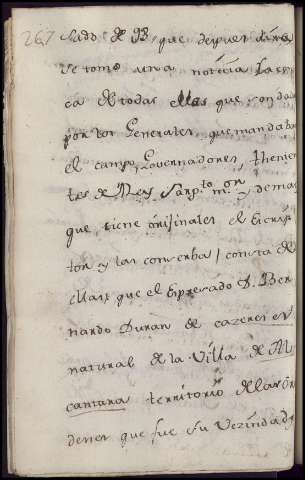 267 sado de 98, que despues
se tomo una noticia
ca de todas ellas que son da
por los Generales, que mandaba
el campo, Governadores, thenien
tes de Rey, Sarg.to m.or y demas
que tiene orijinales el Escrip
tor y las conserba / consta de
ellas que el Expresado D. Ber
nardo Duran de cazeres es
natural de la Villa de Al
cantara territorio de las Or
denes que fue su Vezindad